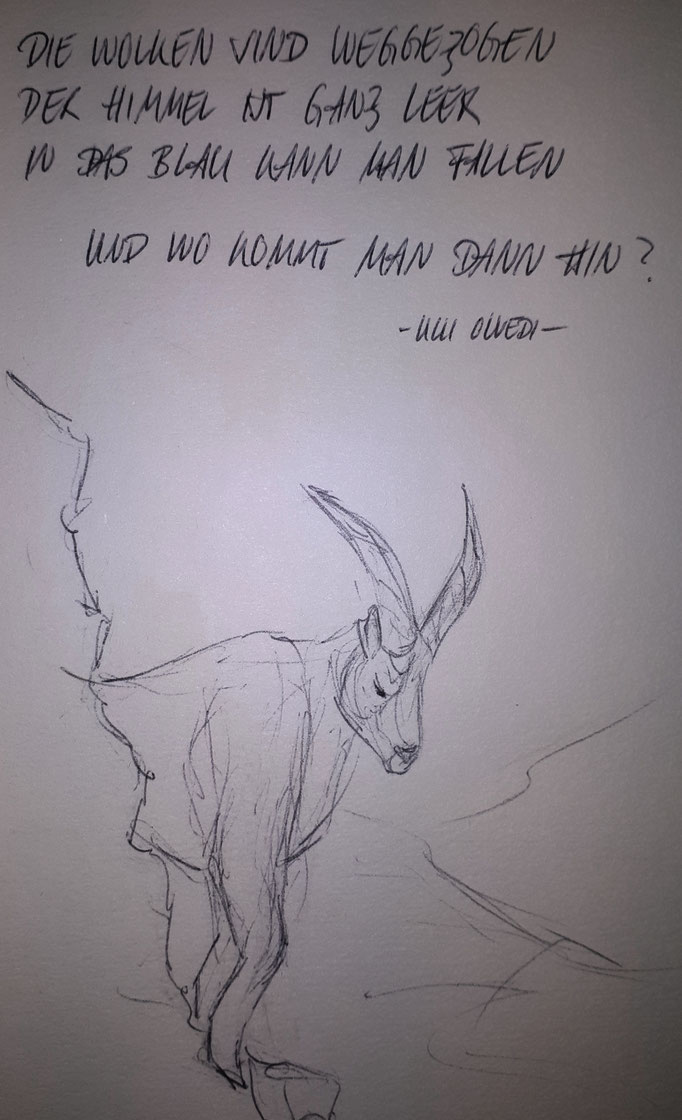 DIE WOLKEN SIND WEGGEZOGEN
DER HIMMEL IST GANZ LEER
IN DAS BLAU KANN MAN FALLEN
UND WO KOMMT MAN DANN HIN?
-ULLI OLVEDI-